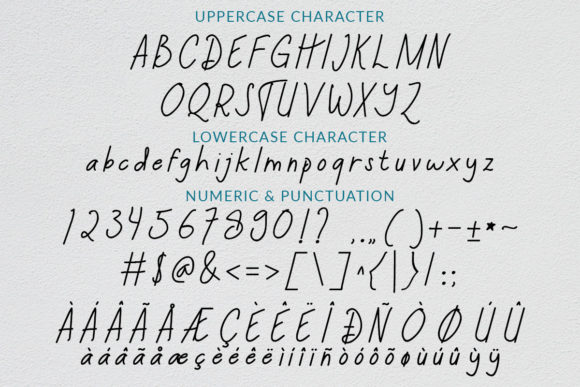 UPPERCASE CHARACTER
ABCDEFGHIJKLMN
OQRSTUVWXYZ
LOWERCASE CHARACTER
abcdefghijklmnpoqrstuvwxyz
NUMERIC & PUNCTUATION
1234567890!? ,.„()+-±*~
#$@&<=>[\]^{|}/:;
ÀÁÂÃÅÆÇÈÉËÏÐÑÒØÚÛ
àáãäåæçèéêëìíîïñòóôõøùúûýÿ